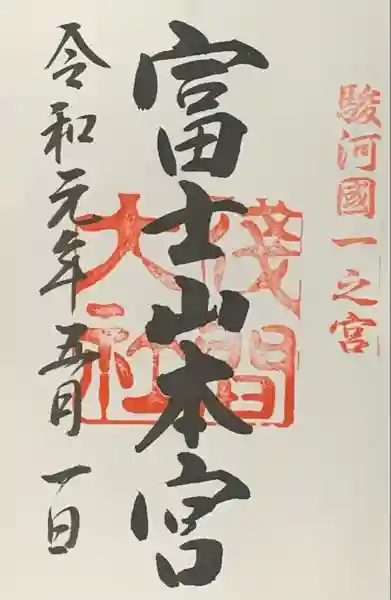 駿河國一之宮
富士山本宮
浅間
大社
令和元年五月一日